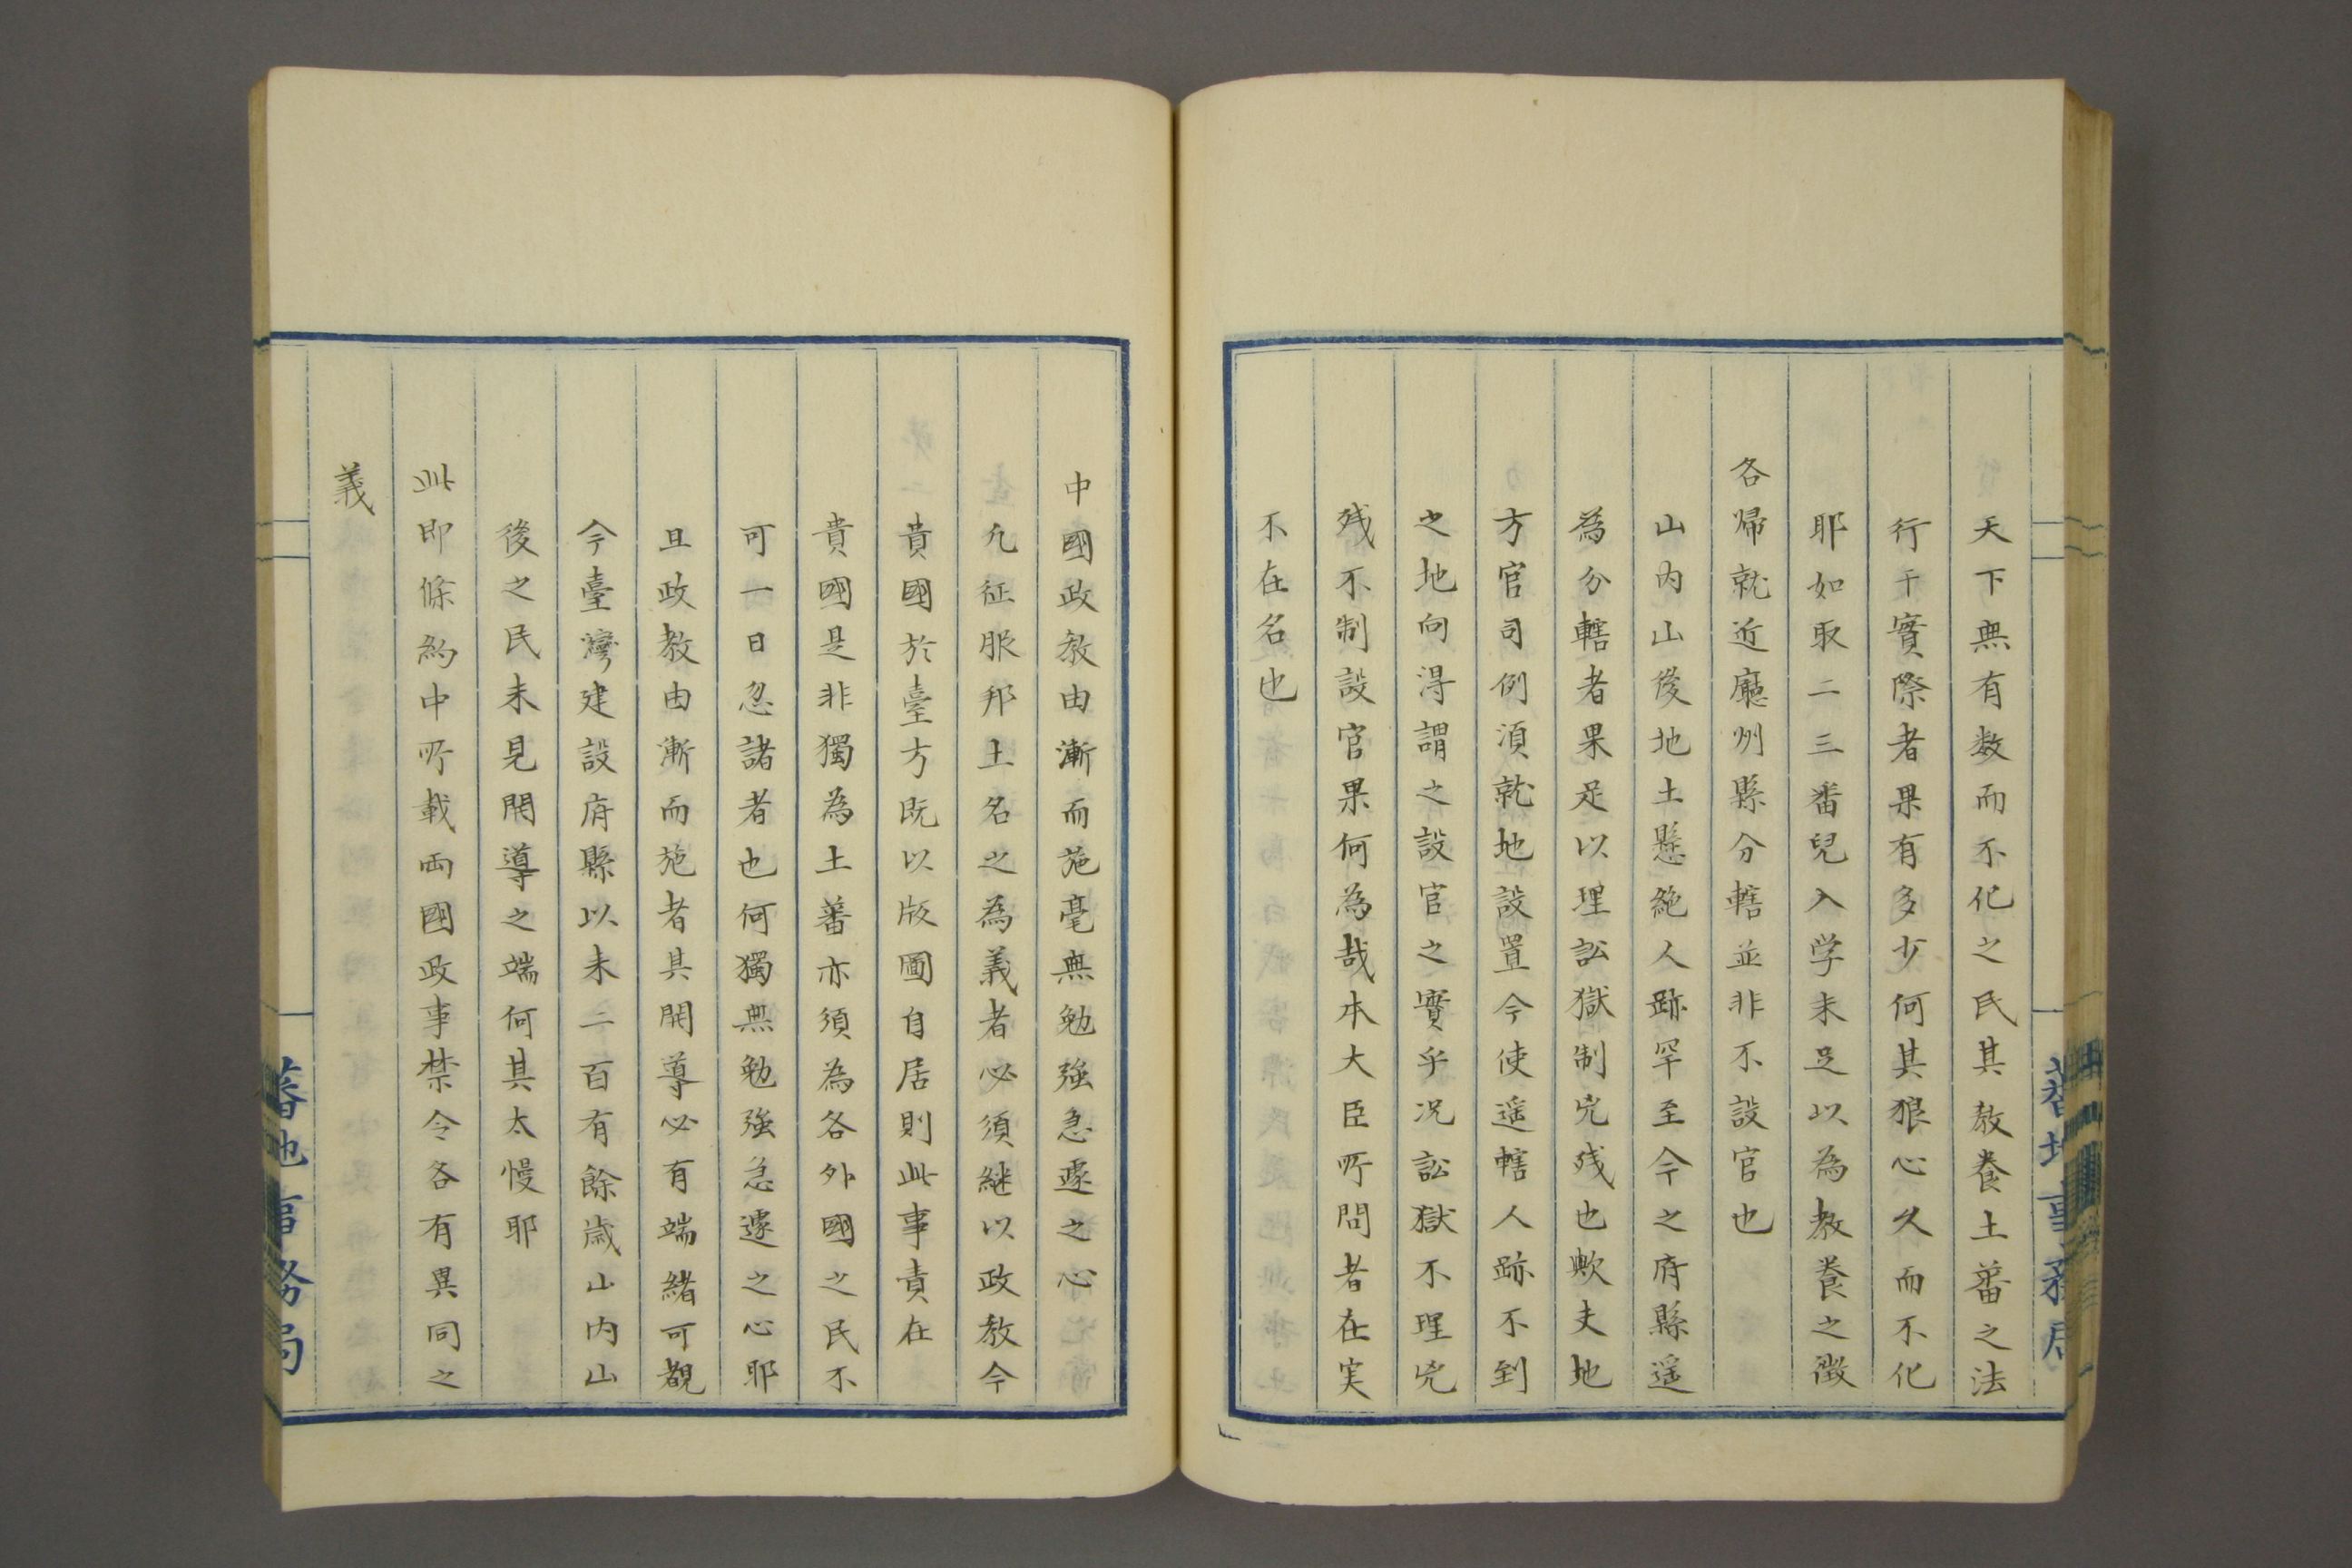 天下無有数而不化之民其教養土蕃之法
行干實際者果有多少何其狼心久而不化
耶如取二三番兒入学未足以為教養之徴
各帰就近廳州縣分轄並非不設官也
山内山後地土懸絶人跡罕至今之府縣遥
為分轄者果足以理訟獄制兇残也歟夫地
方官司例須就地設置今使遥轄人跡不到
之地向得謂之設官之實乎况訟獄不理兇
残不制設官果何為哉本大臣所問者在実
不在名也
中國政教由漸而施毫無勉強急遽之心
凡征服邦土名之為義者必須継以政教今
貴國於臺方既以版圖自居則此事責在
貴國是非獨為土蕃亦須為各外國之民不
可一日忽諸者也何獨無勉強急遽之心耶
且政教由漸而施者其開導必有端緒可觀
今臺灣建設府縣以来二百有餘歳山内山
後之民未見開導之端何其太慢耶
此即條約中所載両國政事禁令各有異同之
義
蕃地事務局